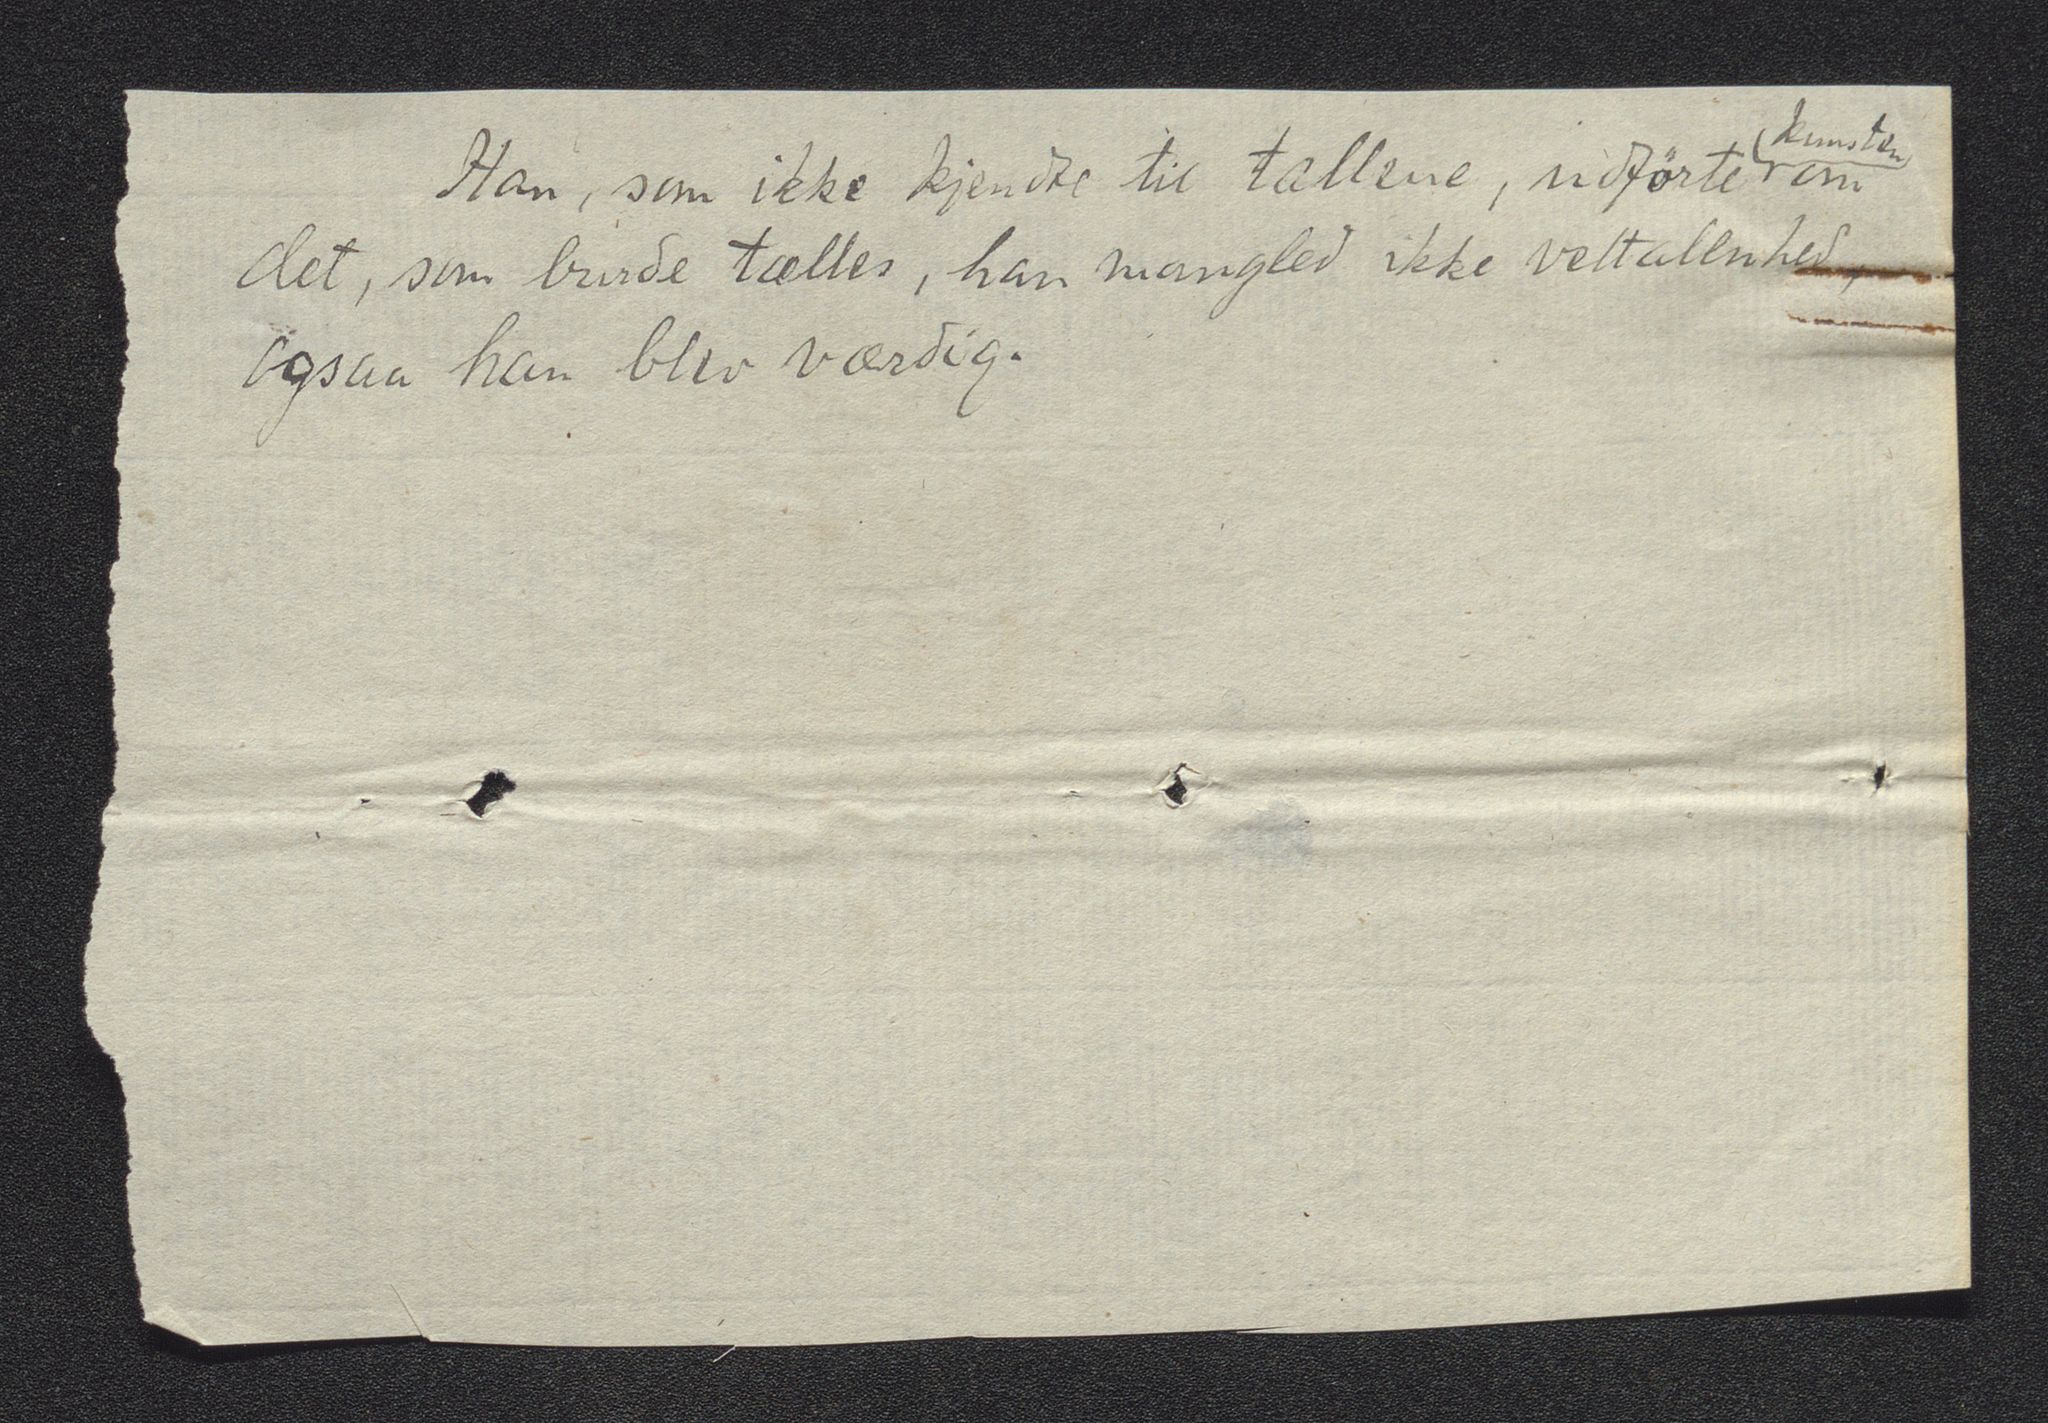 Han, som ikke kjendte til tallene, udförte kunsten om
det, som burde tælles, han mangled ikke veltalenhed,
ogsaa han blev værdig.